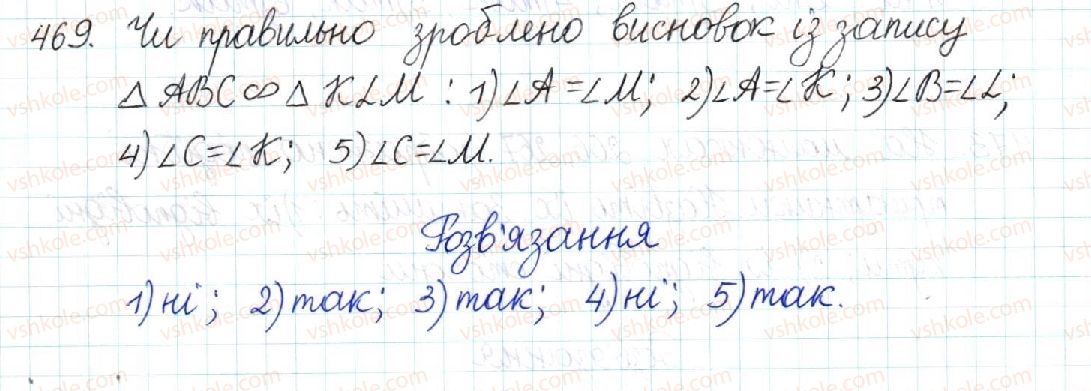 469. Чи правильно зроблено висновок із запису
△ ABC ∾ △ KLM : 1) ∠A = ∠M; 2) ∠A = ∠K; 3) ∠B = ∠L;
4) ∠C = ∠K; 5) ∠C = ∠M.
Розв'язання
1) ні; 2) так; 3) так; 4) ні; 5) так.